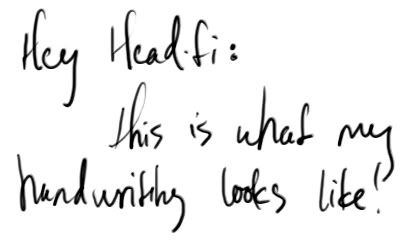 Hey Head-fi:
this is what my
handwriting looks like!